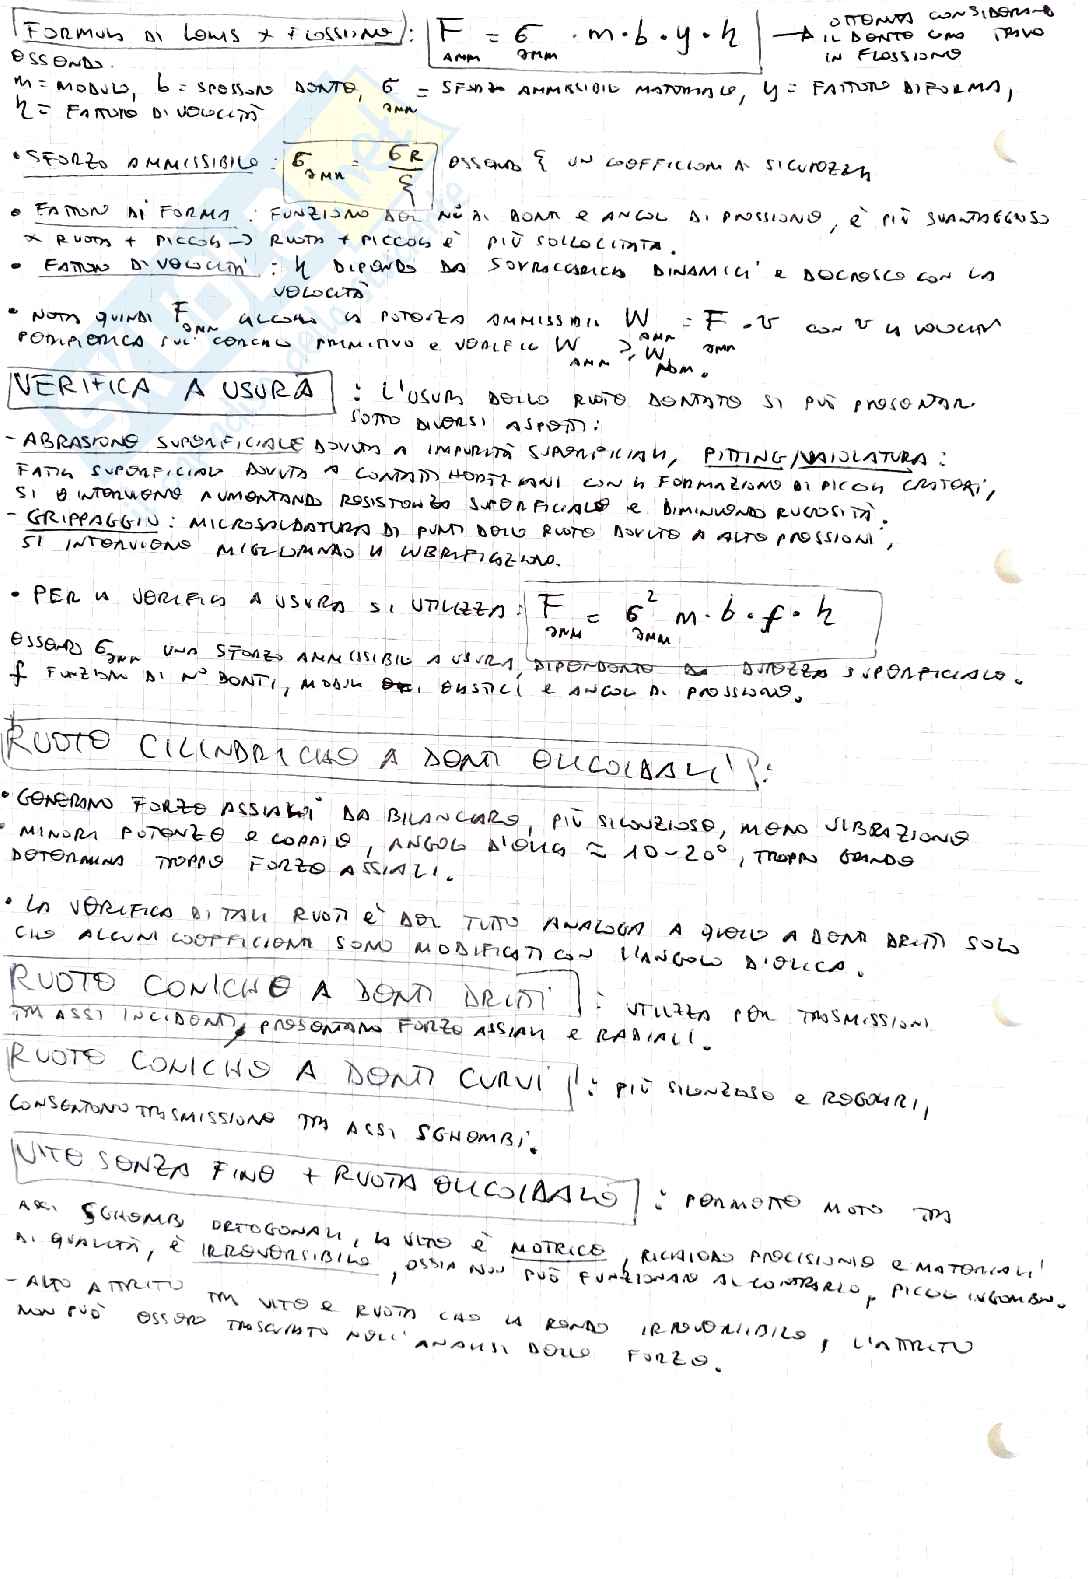 FORMULA DI LEWIS X FLESSIONE: F amm = σ amm · m · b · y · η → OTTENUTA CONSIDERANDO IL DENTE UNA TRAVE IN FLESSIONE
ESSENDO.
m = MODULO, b = SPESSORE DENTE, σ amm = SFORZO AMMISSIBILE MATERIALE, y = FATTORE DI FORMA,
η = FATTORE DI VELOCITÀ
• SFORZO AMMISSIBILE: σ amm = σR / ξ ESSENDO ξ UN COEFFICIENTE DI SICUREZZA
• FATTORE DI FORMA: FUNZIONE DEL N° DI DENTI E ANGOLO DI PRESSIONE, È PIÙ SVANTAGGIOSO
X RUOTA + PICCOLA → RUOTA + PICCOLA È PIÙ SOLLECITATA.
• FATTORE DI VELOCITÀ: η DIPENDE DA SOVRACCARICHI DINAMICI E DECRESCE CON LA
VELOCITÀ
• NOTA QUINDI F amm CALCOLO LA POTENZA AMMISSIBILE W amm = F amm · v CON v LA VELOCITÀ
PERIFERICA SUL CERCHIO PRIMITIVO E VERIFICO W amm ≥ W nom.
VERIFICA A USURA: L'USURA DELLE RUOTE DENTATE SI PUÒ PRESENTARE
SOTTO DIVERSI ASPETTI:
- ABRASIONE SUPERFICIALE DOVUTA A IMPURITÀ SUPERFICIALI, PITTING/VAIOLATURA:
FATICA SUPERFICIALE DOVUTA A CONTATTI HERTZIANI CON LA FORMAZIONE DI PICCOLI CRATERI,
SI INTERVIENE AUMENTANDO RESISTENZA SUPERFICIALE E DIMINUENDO RUGOSITÀ.
- GRIPPAGGIO: MICROSALDATURA DI PUNTI DELLE RUOTE DOVUTE A ALTE PRESSIONI,
SI INTERVIENE MIGLIORANDO LA LUBRIFICAZIONE.
• PER LA VERIFICA A USURA SI UTILIZZA: F amm = σ² amm m · b · f · η
ESSENDO σ amm UNA SFORZO AMMISSIBILE A USURA, DIPENDENTE DA DUREZZA SUPERFICIALE.
f FUNZIONE DI N° DENTI, MODULI ELASTICI E ANGOLO DI PRESSIONE.
RUOTE CILINDRICHE A DENTI ELICOIDALI:
• GENERANO FORZE ASSIALI DA BILANCIARE, PIÙ SILENZIOSE, MENO VIBRAZIONI
• MINORI POTENZE E COPPIE, ANGOLO D'ELICA ≈ 10-20°, TROPPO GRANDE
DETERMINA TROPPE FORZE ASSIALI.
• LA VERIFICA DI TALI RUOTE È DEL TUTTO ANALOGA A QUELLE A DENTI DRITTI SOLO
CHE ALCUNI COEFFICIENTI SONO MODIFICATI CON L'ANGOLO D'ELICA.
RUOTE CONICHE A DENTI DRITTI: UTILIZZA PER TRASMISSIONI
TRA ASSI INCIDENTI, PRESENTANO FORZE ASSIALI E RADIALI.
RUOTE CONICHE A DENTI CURVI: PIÙ SILENZIOSE E REGOLARI,
CONSENTONO TRASMISSIONE TRA ASSI SGHEMBI.
VITE SENZA FINE + RUOTA ELICOIDALE: PERMETTE MOTO TRA
ASSI SGHEMBI ORTOGONALI, LA VITE È MOTRICE, RICHIEDE PRECISIONE E MATERIALI
DI QUALITÀ, È IRREVERSIBILE, OSSIA NON PUÒ FUNZIONARE AL CONTRARIO, PICCOLI INGOMBRI.
- ALTO ATTRITO TRA VITE E RUOTA CHE LA RENDE IRREVERSIBILE, L'ATTRITO
NON PUÒ ESSERE TRASCURATO NELL'ANALISI DELLE FORZE.